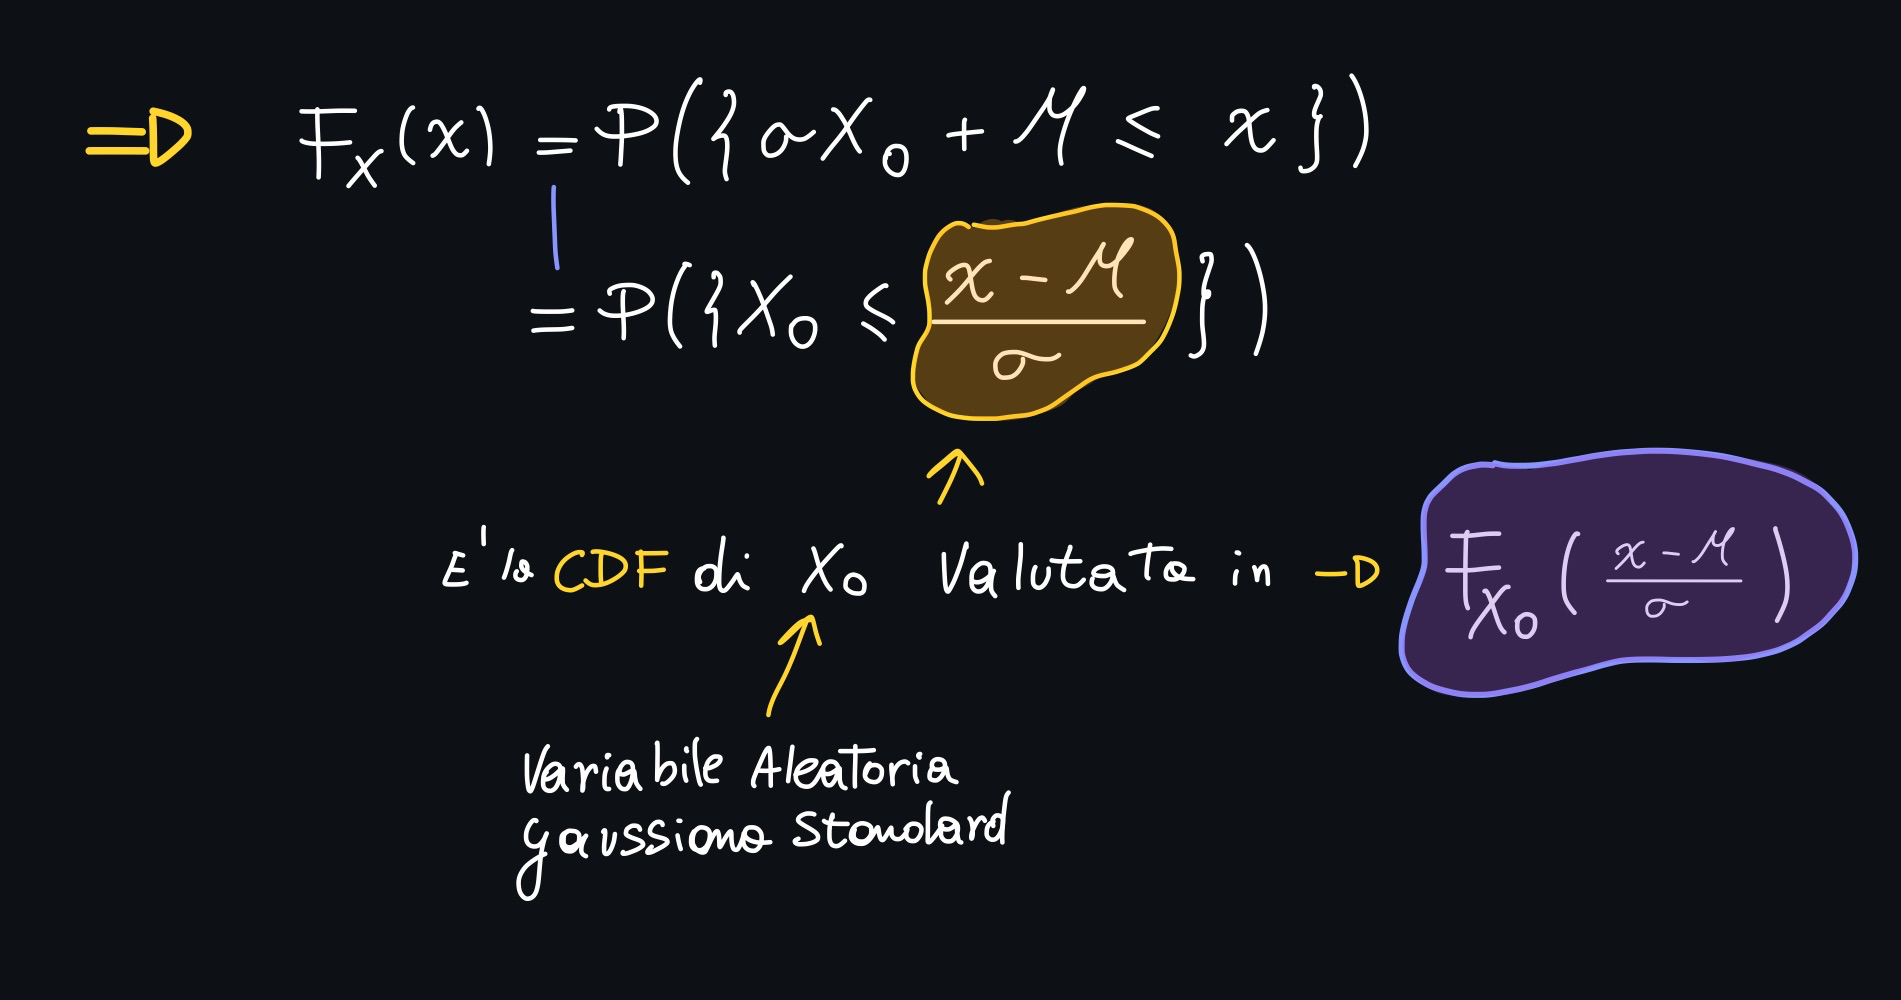 ⇒ F_X(x) = P({σX₀ + μ ≤ x})
= P({X₀ ≤ (x - μ)/σ})
E' la CDF di X₀ Valutata in → F_X₀((x - μ)/σ)
Variabile Aleatoria
gaussiana Standard